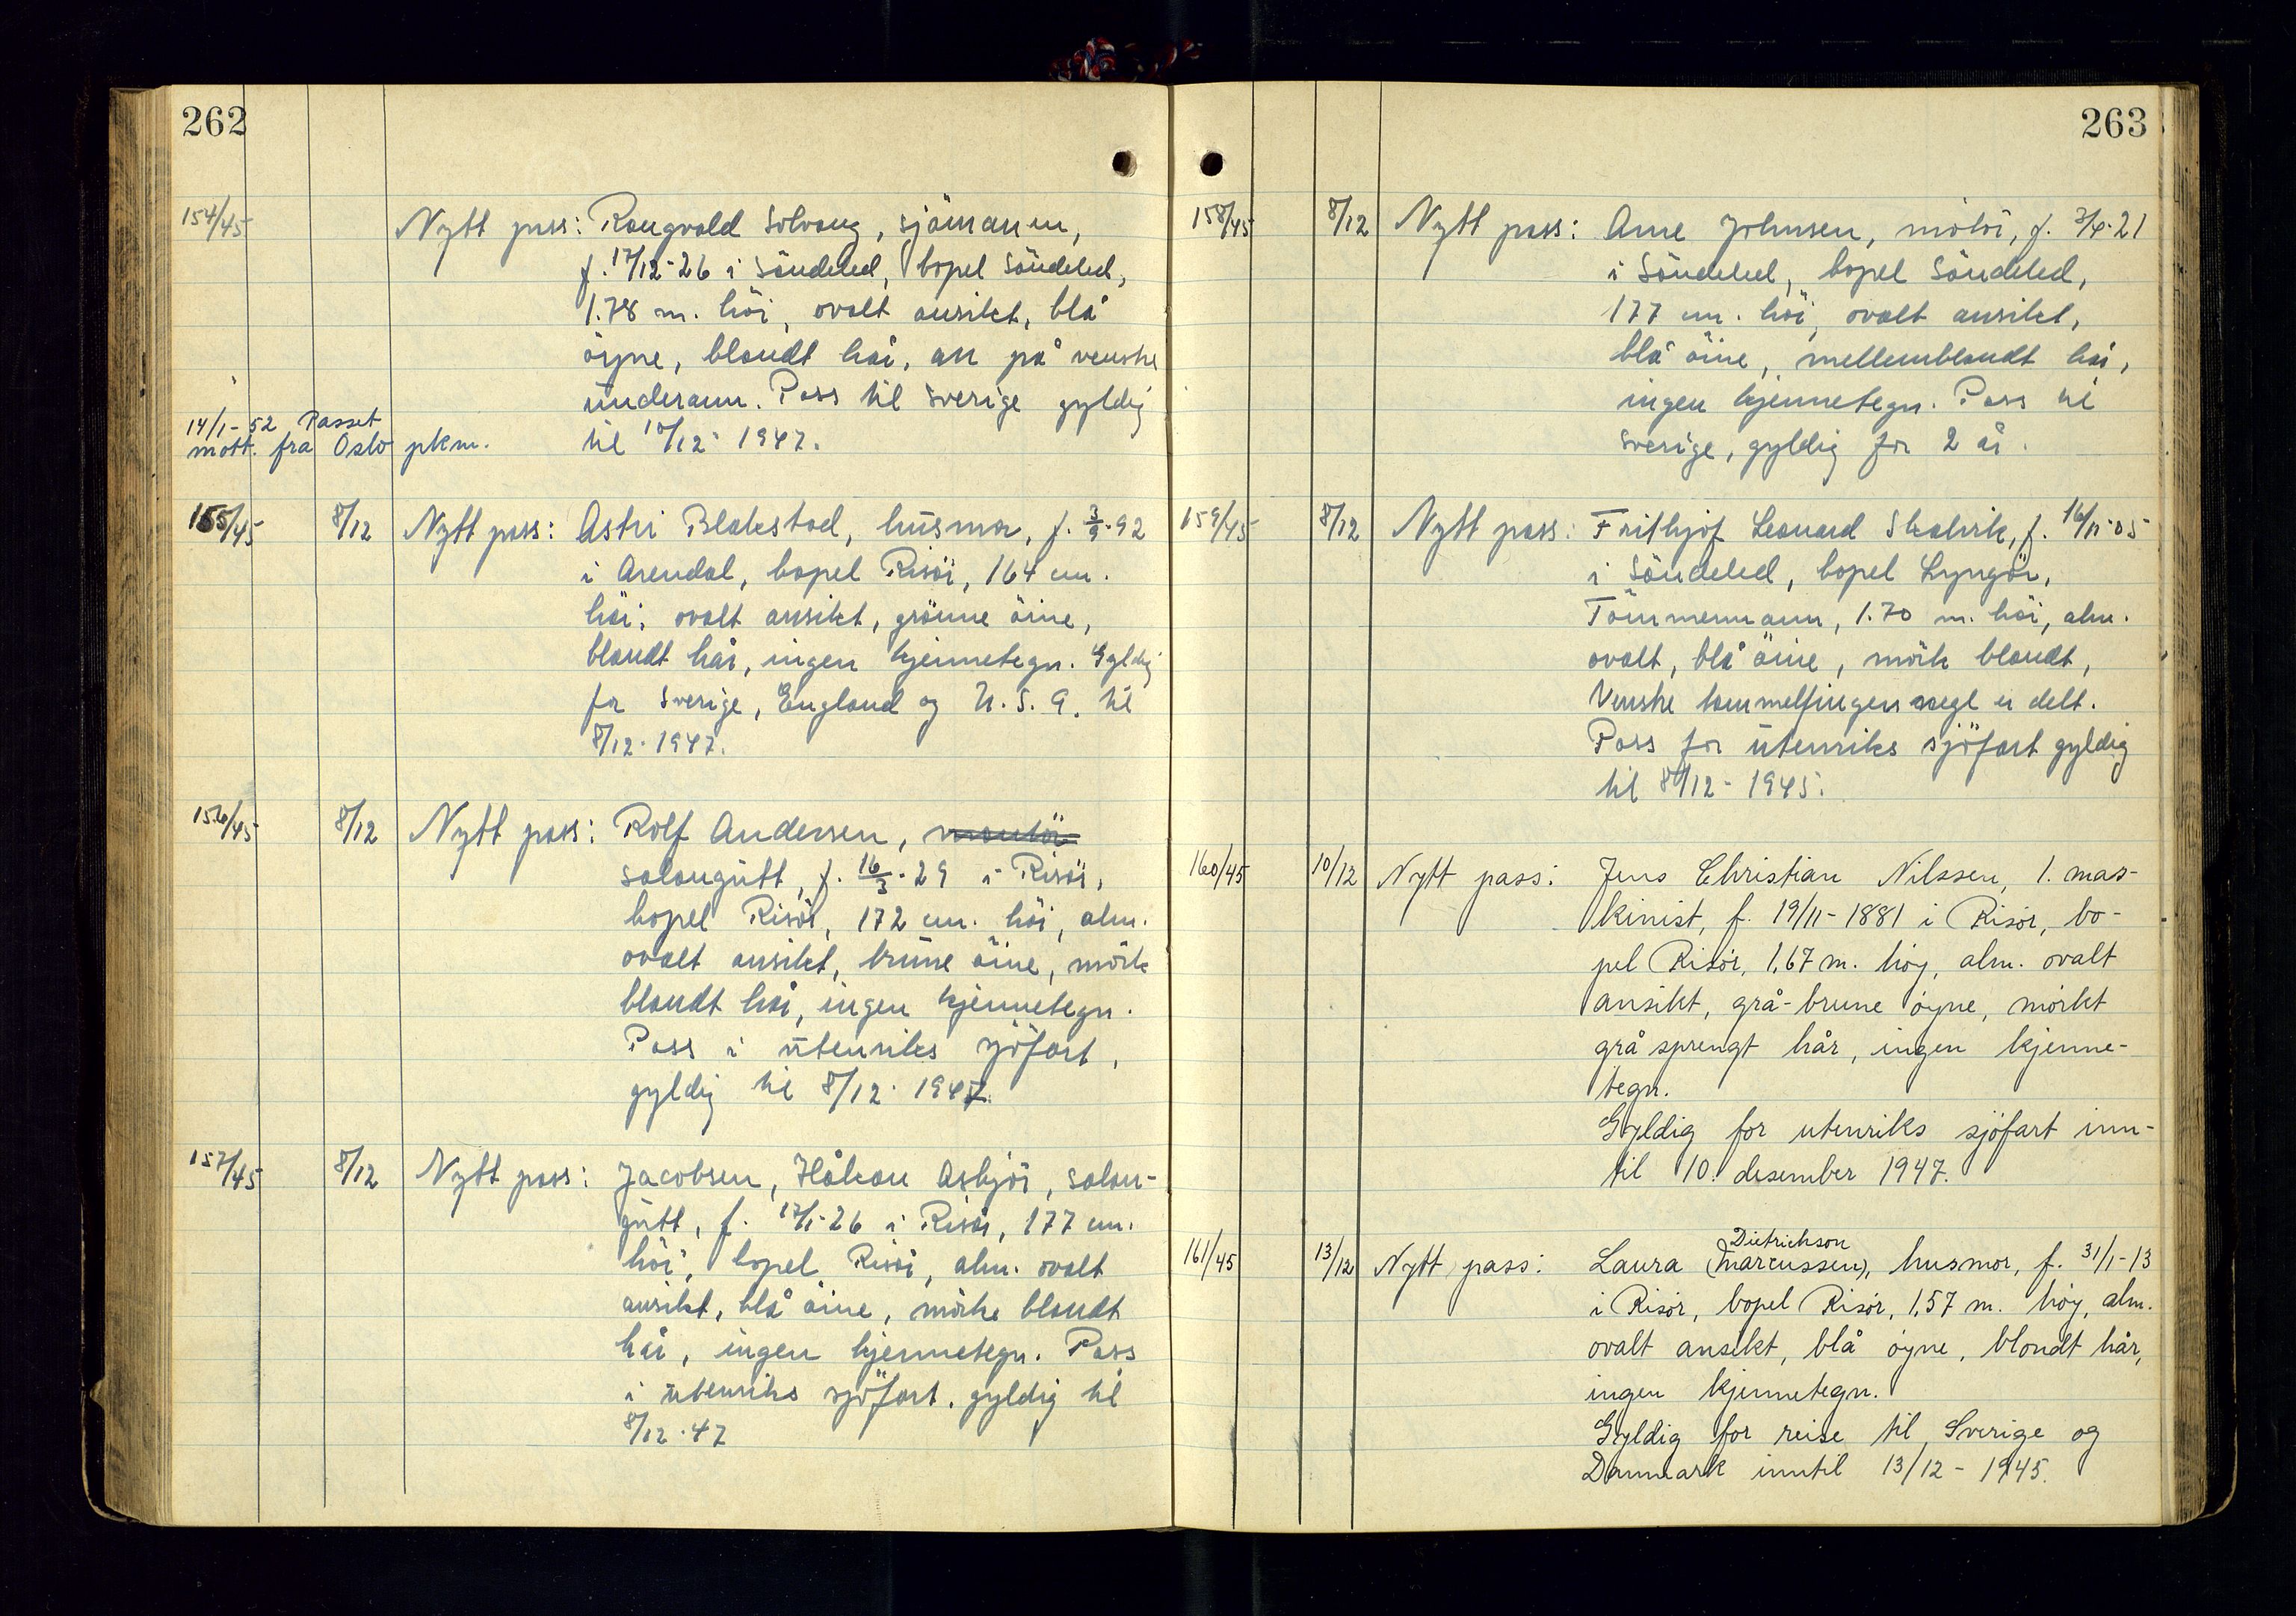 262
154/45 Nytt pass: Rangvald Solvang, sjömann,
f. 17/12-26 i Söndeled, bopel Söndeled,
1.78 m. höi, ovalt ansikt, blå
öyne, blondt hår, arr på venstre
underarm. Pass til Sverige gyldig
til 10/12- 1947.
14/1-52 Passet
mott. fra Oslo pkm.
155/45 8/12 Nytt pass: Astri Blakstad, husmor, f. 3/9-92
i Arendal, bopel Risör, 164 cm.
höi, ovalt ansikt, grönne öine,
blondt hår, ingen kjennetegn. Gyldig
for Sverige, England og U.S.A. til
8/12-1947.
156/45 8/12 Nytt pass: Rolf Andersen, montör
salongutt, f. 16/3-29 i Risör,
bopel Risör, 172 cm. höi, alm.
ovalt ansikt, brune öine, mörk
blondt hår, ingen kjennetegn.
Pass i utenriks sjöfart,
gyldig til 8/12- 1947.
157/45 8/12 Nytt pass: Jacobsen, Håkon Asbjör, salon-
gutt, f. 17/1-26 i Risör, 177 cm.
höi, bopel Risör, alm. ovalt
ansikt, blå öine, mörke blondt
hår, ingen kjennetegn. Pass
i utenriks sjöfart, gyldig til
8/12-47
263
158/45 8/12 Nytt pass: Arne Johnsen, f.
i Söndeled, bopel Söndeled,
177 cm. höi, ovalt ansikt,
blå öine, mellemblondt hår,
ingen kjennetegn. Pass til
Sverige, gyldig for 2 år.
159/45 8/12 Nytt pass: Frithjof Leonard Skalvik, f. 16/11-05
i Söndeled, bopel Lyngör,
Tömmermann, 1.70 m. höi, alm.
ovalt, blå öine, mörk blondt,
Venstre tommelfingernegl er delt.
Pass for utenriks sjöfart gyldig
til 8/12- 1945.
160/45 10/12 Nytt pass: Jens Christian Nilssen, 1. mas-
kinist, f. 19/11-1881 i Risör, bo-
pel Risör, 1,67 m. höy, alm. ovalt
ansikt, grå-brune öyne, mörkt
grå sprengt hår, ingen kjenne-
tegn.
Gyldig for utenriks sjöfart inn-
til 10. desember 1947.
Dietrichson
161/45 13/12 Nytt pass: Laura (Marcussen), husmor, f. 31/1-13
i Risör, bopel Risör, 1,57 m. höy, alm.
ovalt ansikt, blå öyne, blondt hår,
ingen kjennetegn.
Gyldig for reise til Sverige og
Danmark inntil 13/12- 1945.